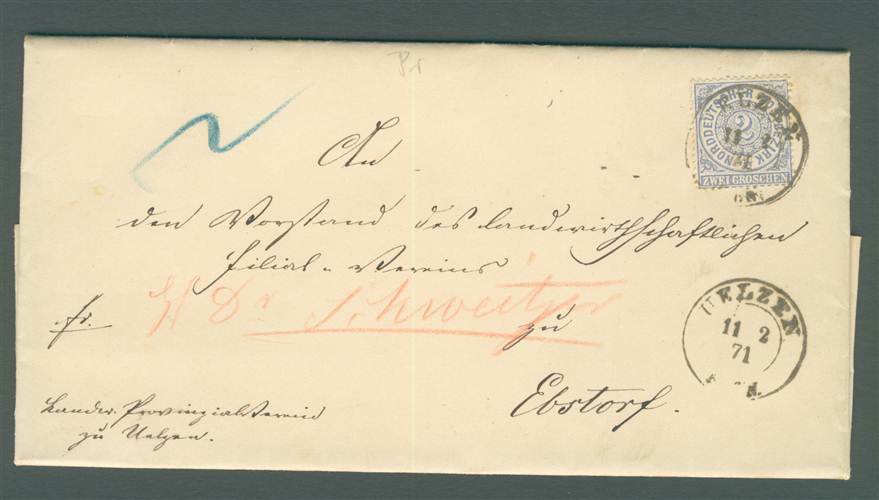 An
den Vorstand des landwirthschaftlichen
Filial-Vereins
fr.
H Dr Schweitzer
zu
Ebstorf.
Provinzialverein
zu Uelzen.
NORDDEUTSCHER POSTBEZIRK
2
ZWEI GROSCHEN
UELZEN
11 2
71
UELZEN
11 2
71